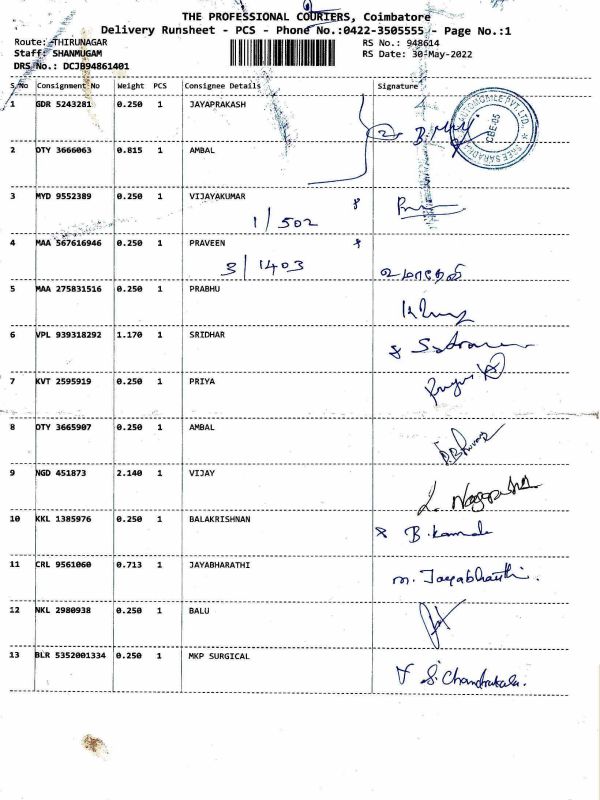 THE PROFESSIONAL COURIERS, Coimbatore
Delivery Runsheet - PCS - Phone No.:0422-3505555 - Page No.:1
Route: THIRUNAGAR RS No.: 948614
Staff: SHANMUGAM RS Date: 30-May-2022
DRS No.: DCJB94861401
S.No Consignment No Weight PCS Consignee Details Signature
1 GDR 5243281 0.250 1 JAYAPRAKASH
AUTOMOBILE PVT. LTD. CBE-05 SREE SARADHA
2 OTY 3666063 0.815 1 AMBAL
3 MYD 9552389 0.250 1 VIJAYAKUMAR
1/502
4 MAA 567616946 0.250 1 PRAVEEN
3/1403
உமாதேவி
5 MAA 275831516 0.250 1 PRABHU
6 VPL 939318292 1.170 1 SRIDHAR
7 KVT 2595919 0.250 1 PRIYA
8 OTY 3665907 0.250 1 AMBAL
9 NGD 451873 2.140 1 VIJAY
10 KKL 1385976 0.250 1 BALAKRISHNAN
B. Kamala
11 CRL 9561060 0.713 1 JAYABHARATHI
m. Jayabharathi.
12 NKL 2980938 0.250 1 BALU
13 BLR 5352001334 0.250 1 MKP SURGICAL
S. Chandrakala.